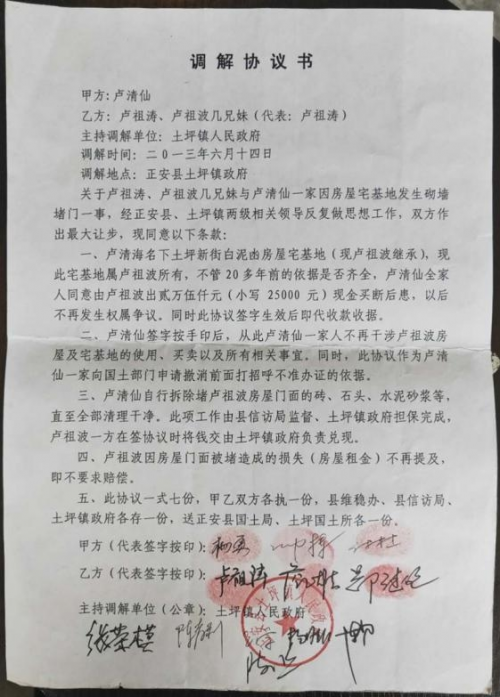 调解协议书
甲方:卢清仙
乙方:卢祖涛、卢祖波几兄妹(代表:卢祖涛)
主持调解单位:土坪镇人民政府
调解时间:二0一三年六月十四日
调解地点:正安县土坪镇政府
关于卢祖涛、卢祖波几兄妹与卢清仙一家因房屋宅基地发生砌墙
堵门一事,经正安县、土坪镇两级相关领导反复做思想工作,双方作
出最大让步,现同意以下条款:
一、卢清海名下土坪新街白泥由房屋宅基地(现卢祖波继承),现
此宅基地属卢祖波所有,不管20多年前的依据是否齐全,卢清仙全家
人同意由卢祖波出贰万伍仟元(小写 25000 元)现金买断后患,以后
不再发生权属争议。同时此协议签字生效后即代收款收据。
二、卢清仙签字按手印后,从此卢清仙一家人不再干涉卢祖波房
屋及宅基地的使用、买卖以及所有相关事宜。同时,此协议作为卢清
仙一家向国土部门申请撤消前面打招呼不准办证的依据。
三、卢清仙自行拆除堵卢祖波房屋门面的砖、石头、水泥砂浆等,
直至全部清理干净。此项工作由县信访局监督、土坪镇政府担保完成,
卢祖波一方在签协议时将钱交由土坪镇政府负责兑现。
四、卢祖波因房屋门面被堵造成的损失(房屋租金)不再提及,
即不要求赔偿。
五、此协议一式七份,甲乙双方各执一份,县维稳办、县信访局、
土坪镇政府各存一份,送正安县国土局、土坪国土所各一份。
甲方(代表签字按印):
乙方(代表签字按印):卢祖涛
主持调解单位(公章):土坪镇人民政府